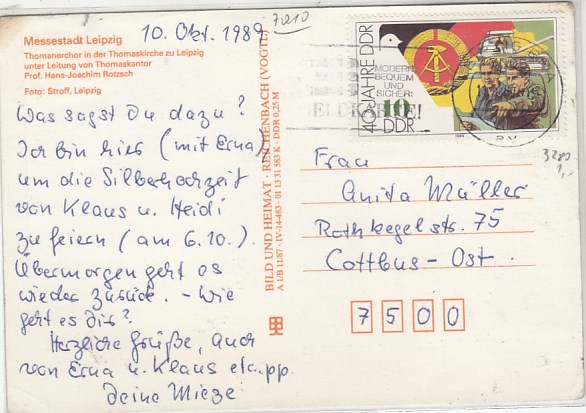 10. Okt. 1989
7010
Messestadt Leipzig
Thomanerchor in der Thomaskirche zu Leipzig
unter Leitung von Thomaskantor
Prof. Hans-Joachim Rotzsch
Foto: Stroff, Leipzig
Was sagst Du dazu?
Ich bin hier (mit Erna)
um die Silberhochzeit
von Klaus u. Heidi
zu feiern (am 6.10.).
Übermorgen geht es
wieder zurück. - Wie
geht es Dir?
Herzliche Grüße, auch
von Erna u. Klaus etc. pp.
Deine Mieze
BILD UND HEIMAT · REICHENBACH (VOGTL)
A 1/B 11/87 · IV-14-483 · 01 13 31 583 K · DDR 0,25 M
40 JAHRE DDR
10
DDR
MODERN
BEQUEM
UND
SICHER:
3280
1,-
Frau
Anita Müller
Rothkegelstr. 75
Cottbus-Ost.
7500